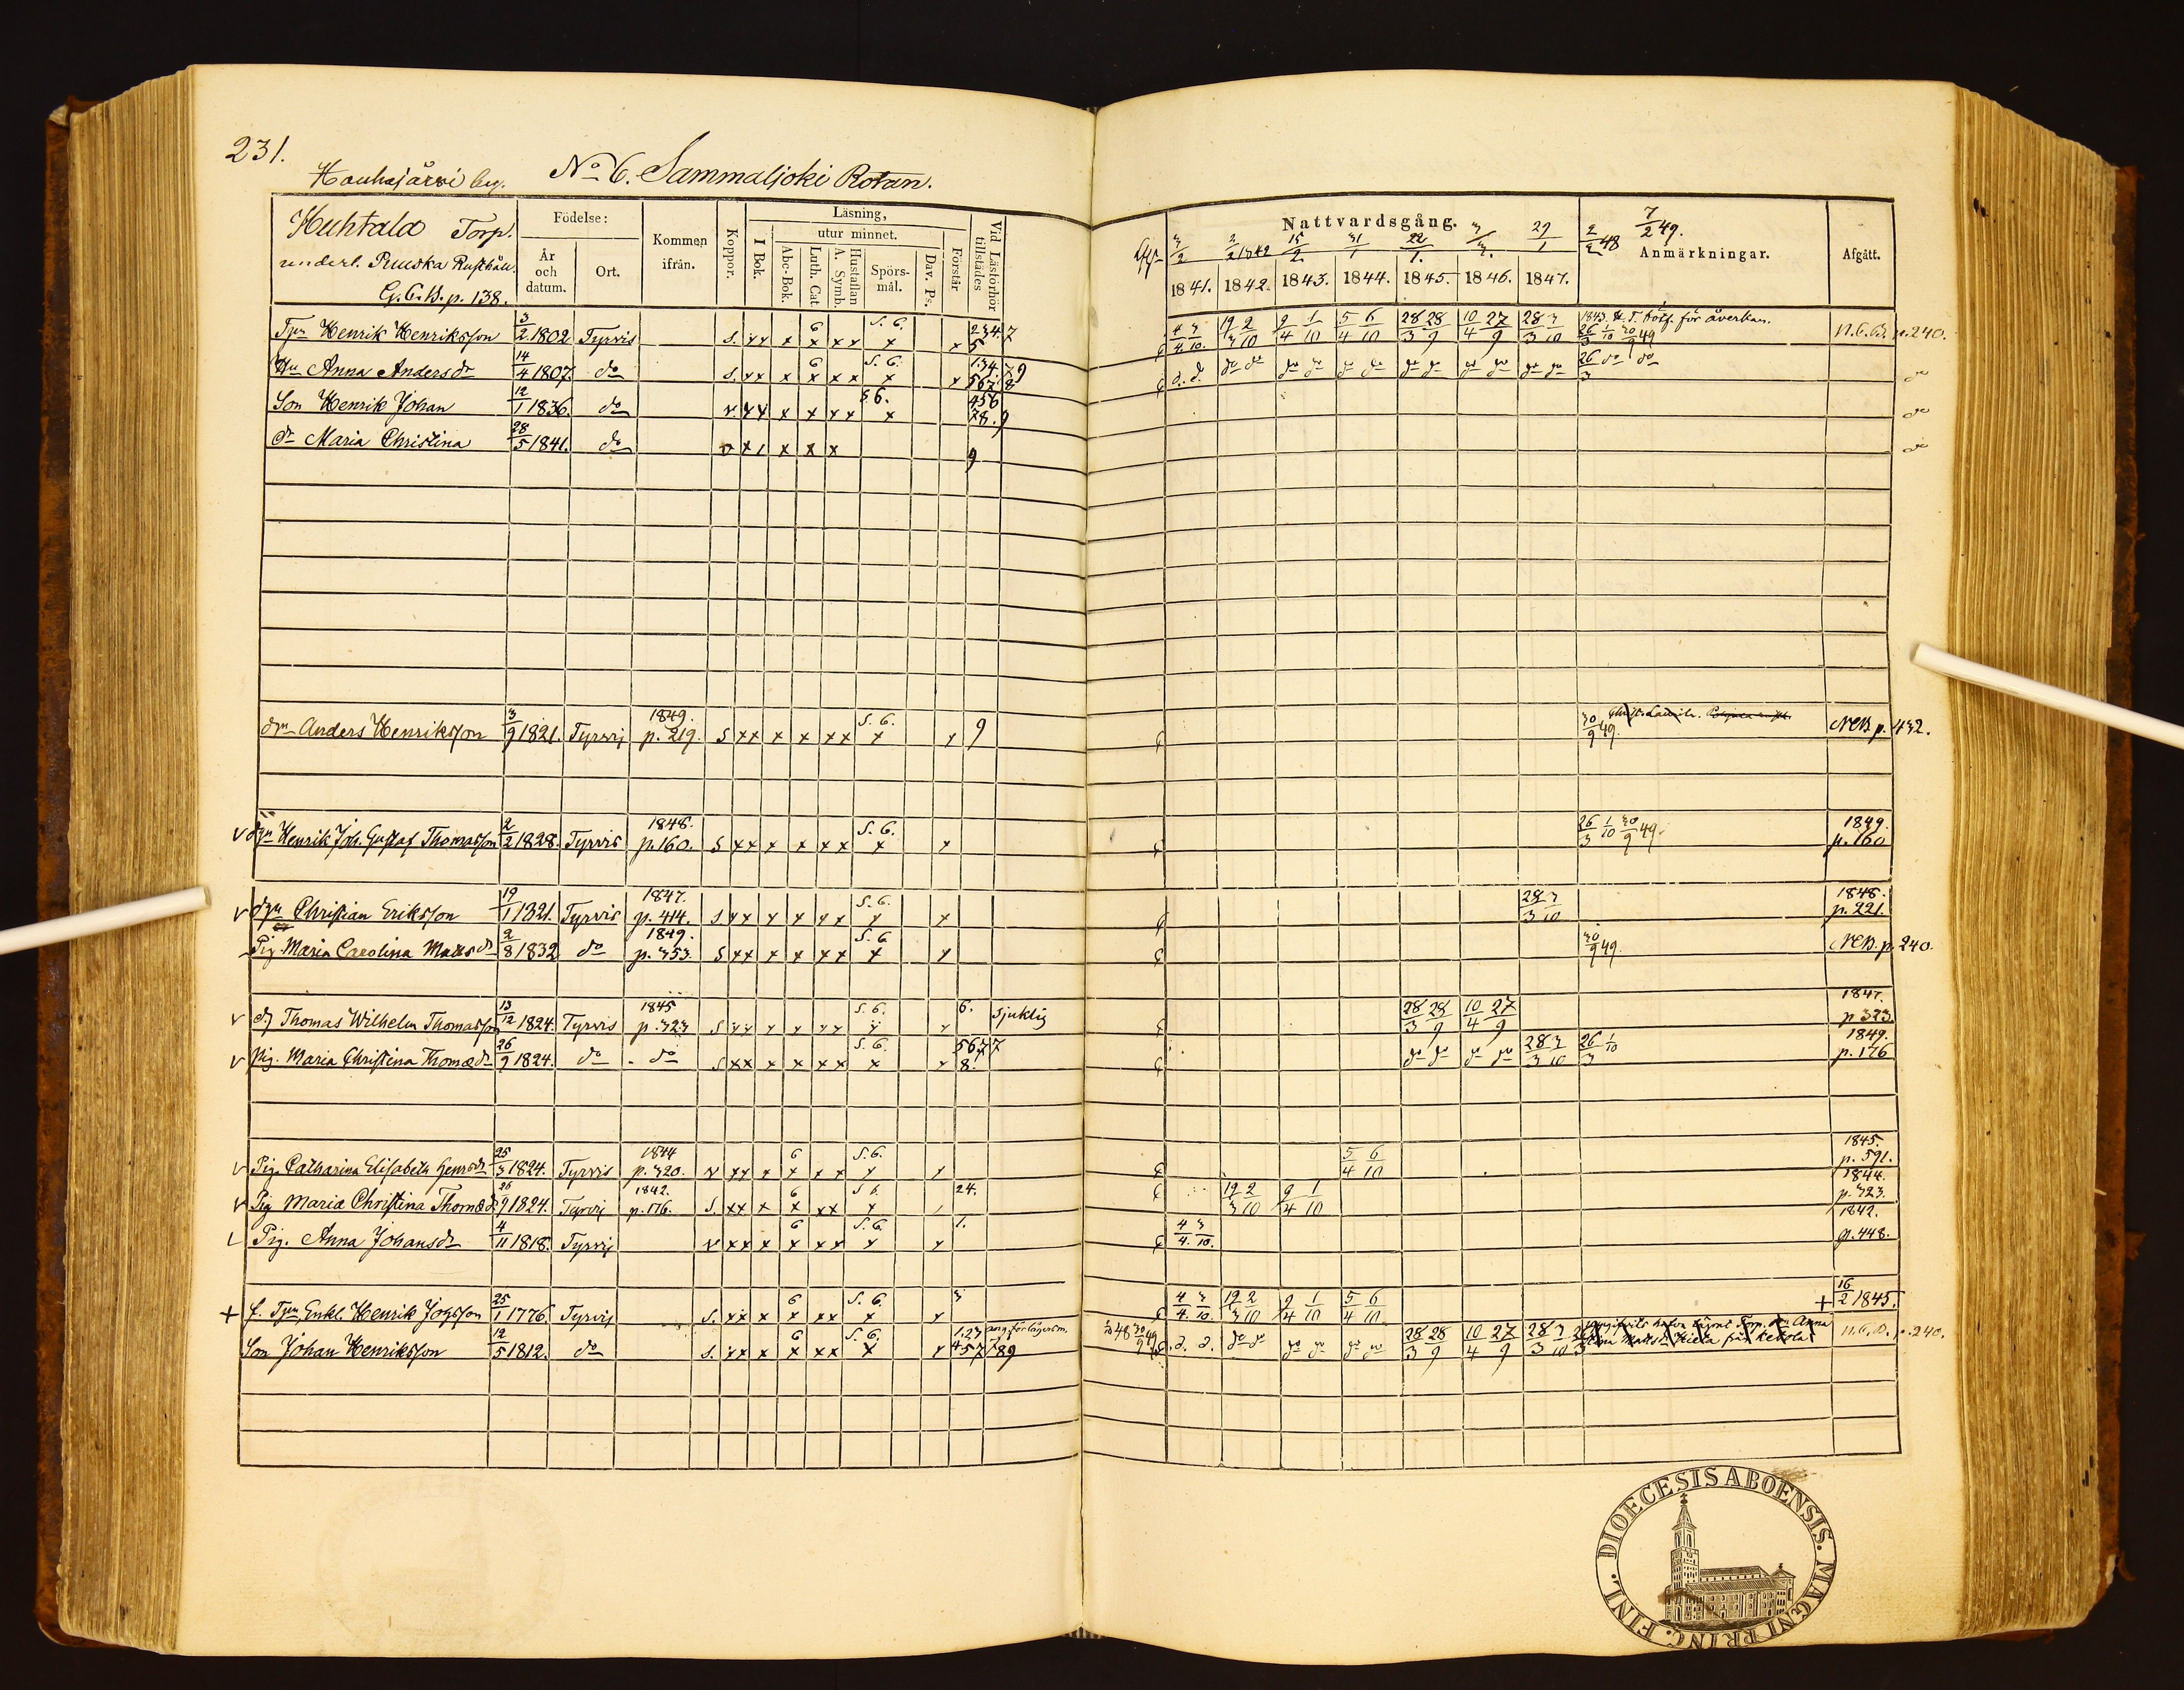 231.
Hauhajärwi by. No 6. Sammaljoki Rotan.
Huhtala Torp.
underl. Ruuska Rusthåll.
G.C.B. p. 138.
Födelse:
År och datum.
Ort.
Kommen ifrån.
Koppor.
Läsning,
I Bok.
utur minnet.
Abc-Bok.
Luth. Cat.
Hustaflan A. Symb.
Spörs-mål.
Dav. Ps.
Förstår
Vid Läsförhör tillstädes
Nattvardsgång.
3/2 2/2 1842 15/2 31/1 22/1. 29/1 2/2 48 7/2 49.
1841. 1842. 1843. 1844. 1845. 1846. 1847.
Anmärkningar.
Afgått.
Tpr Henrik Henriksson 3/2 1802 Tyrvis s. x x x 6 x x x S. 6. x x 234.7 5 4/4. 3/10. 19/3 2/10 9/4 1/10 5/4 6/10 28/3 28/9 10/4 27/9 28/3 3/10 26/3 1/10 30/9 49 N.C.B. p. 240.
Hu Anna Andersdr 14/4 1807. do s. x x x 6 x x x S. 6. x x 134.79 5678 d. d. do do do do do do do do do do do do 26/3 do do do
Son Henrik Johan 12/1 1836. do v. x x x x x x S 6. x 456 78.9 do
dr Maria Christina 28/5 1841. do x x x x 9 do
drn Anders Henriksson 3/9 1821. Tyrvis 1849. p. 219. s x x x x x x S. 6. x x 9 30/9 49. NCB p. 432.
v drn Henrik Joh. Gustaf Thomasson 2/2 1828. Tyrvis 1848. p. 160. s x x x x x x S. 6. x x 26/3 1/10 30/9 49. 1849. p. 160
v drn Christian Eriksson 19/1 1821. Tyrvis 1847. p. 414. s x x x x x x S. 6. x x 28/3 3/10 1848. p. 221.
Pig. Maria Carolina Matsdr 2/8 1832 do 1849. p. 353. s x x x x x x S. 6 x x 30/9 49. NCB. p. 240.
v dr Thomas Wilhelm Thomasson 13/12 1824. Tyrvis 1845 p. 323 s x x x x x x S. 6. x x 6. Sjuklig 28/3 28/9 10/4 27/9 1847. p 323.
v Pig. Maria Christina Thomædr 26/9 1824. do do s x x x x x x S. 6. x x 5677 8. do do do do 28/3 3/10 26/3 1/10 1849. p. 176
v Pig. Catharina Elisabeth Henrsdr 25/3 1824. Tyrvis 1844 p. 320. v x x x 6 x x x S. 6. x x 5/4 6/10 1845. p. 591.
v Pig Maria Christina Thomædr 26/9 1824. Tyrvis 1842. p. 176. s. x x x 6 x x x S 6. x 24. 19/3 2/10 9/4 1/10 1844. p. 323.
Pig. Anna Johansdr 4/11 1818. Tyrvis v x x x 6 x x x S. 6. x x 1. 4/4. 3/10. 1842. p. 448.
+ f. Tprn Enkl. Henrik Jörsson 25/1 1776. Tyrvis s. x x x 6 x x x S. 6. x x 3 4/4. 3/10. 19/3 2/10 9/4 1/10 5/4 6/10 + 16/2 1845.
Son Johan Henriksson 12/5 1812. do s. x x x 6 x x x S. 6. x x 1.23 457 89 d. d. do do do do do do 28/3 28/9 10/4 27/9 28/3 3/10 N.C.B. p. 240.
DIOECESIS ABOENSIS. MAGNI PRINC. FINL.